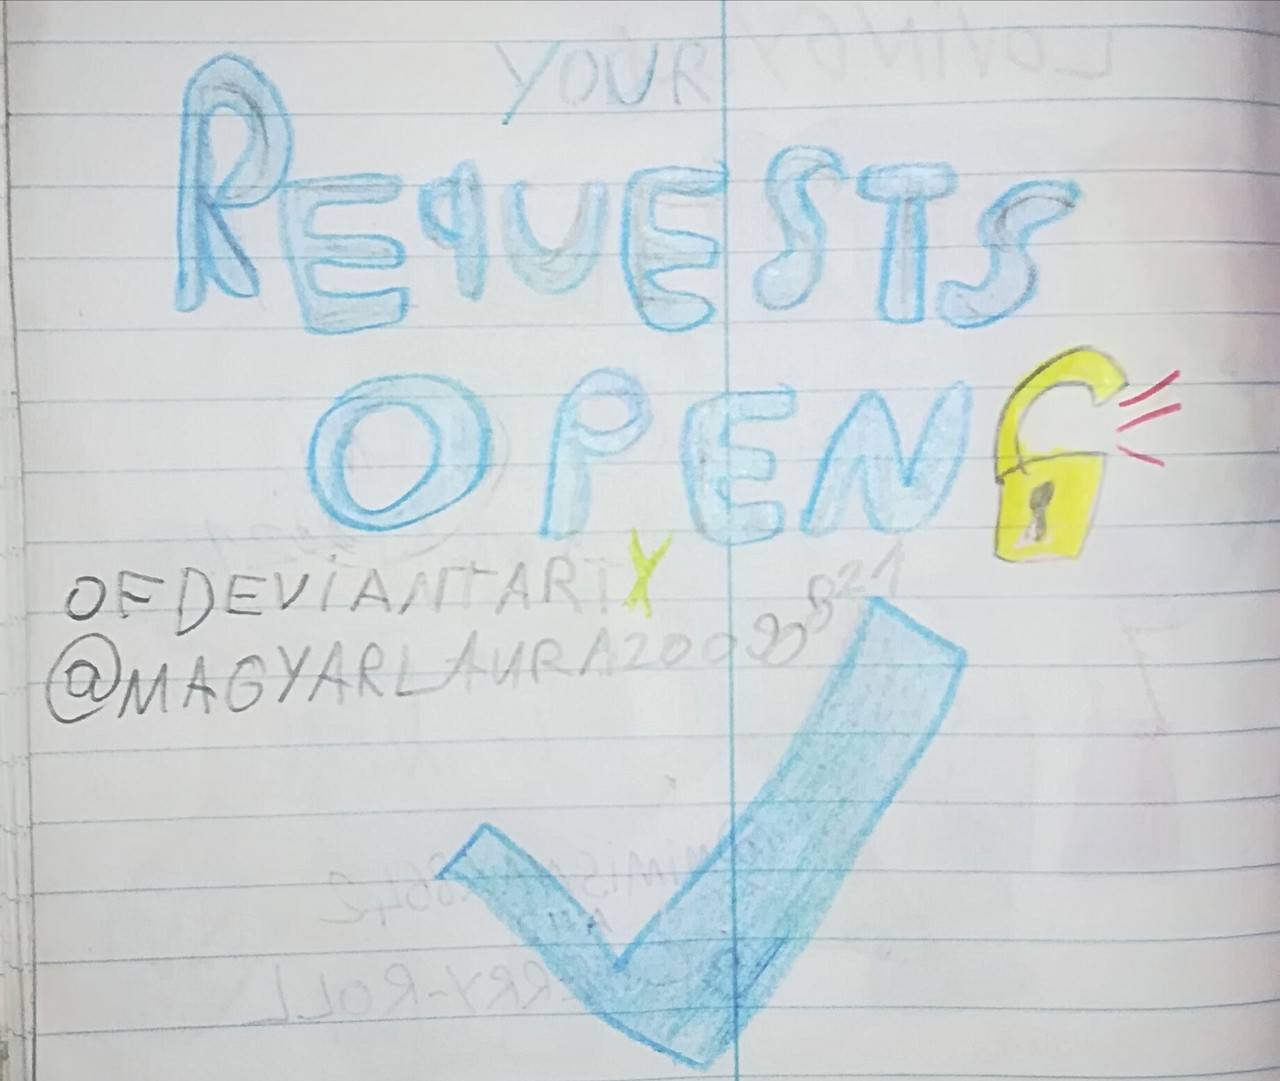 YOUR
REQUESTS
OPEN
OF DEVIANTART
@MAGYARLAURA2009